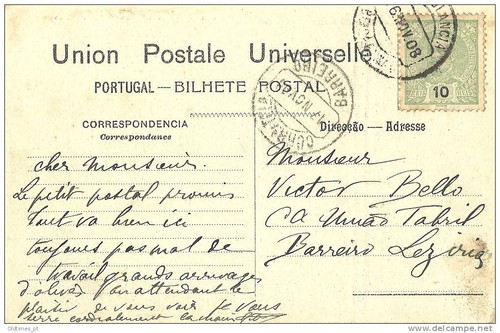 Union Postale Universelle
PORTUGAL—BILHETE POSTAL
CORRESPONDENCIA
Correspondance
Direcção — Adresse
10
BARREIRO
17 NOV
cher Monsieur.
Le petit postal promis
tout va bien ici
toujours pas mal de
travail grands arrivages
d'olives en attendant le
plaisir de vous voir je vous
serre cordialement la main
Monsieur
Victor Bello
União Fabril
Barreiro
Oldtimes_pt
delcampe.net